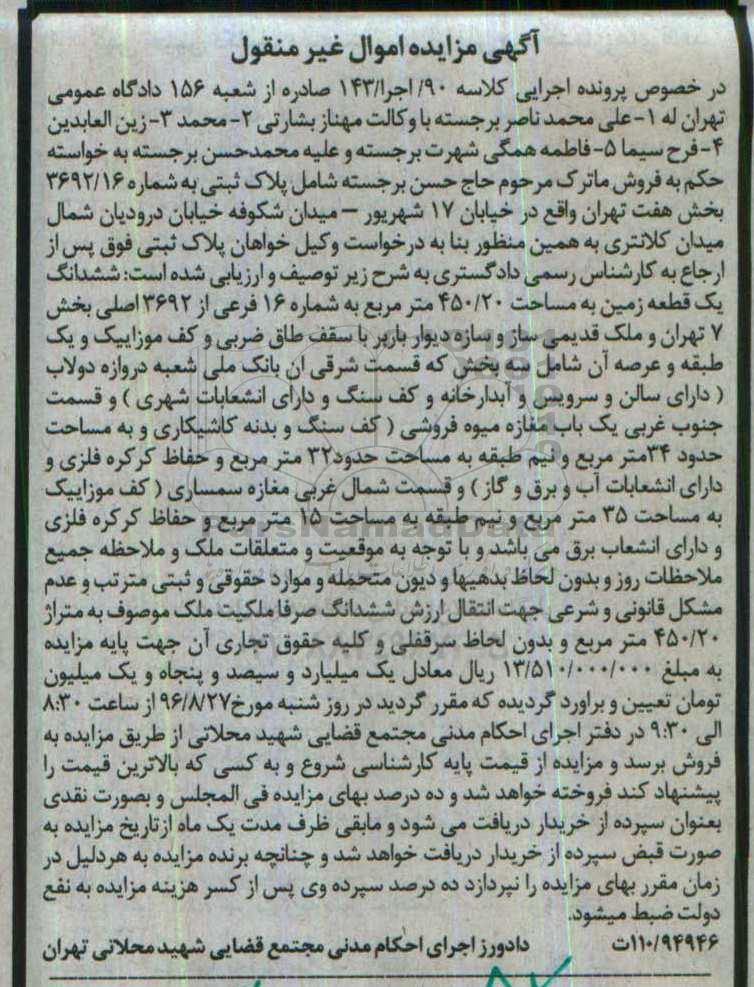 آگهی مزایده اموال غیر منقول
در خصوص پرونده اجرایی کلاسه ۹۰/ اجرا/۱۴۳ صادره از شعبه ۱۵۶ دادگاه عمومی
تهران له ۱-علی محمد ناصر برجسته با وکالت مهناز بشارتی ۲- محمد ۳- زین العابدین
۴-فرح سیما ۵-فاطمه همگی شهرت برجسته و علیه محمدحسن برجسته به خواسته
حکم به فروش ماترک مرحوم حاج حسن برجسته شامل پلاک ثبتی به شماره ۳۶۹۲/۱۶
بخش هفت تهران واقع در خیابان ۱۷ شهریور – میدان شکوفه خیابان درودیان شمال
میدان کلانتری به همین منظور بنا به درخواست وکیل خواهان پلاک ثبتی فوق پس از
ارجاع به کارشناس رسمی دادگستری به شرح زیر توصیف و ارزیابی شده است: ششدانگ
یک قطعه زمین به مساحت ۴۵۰/۲۰ متر مربع به شماره ۱۶ فرعی از ۳۶۹۲ اصلی بخش
۷ تهران و ملک قدیمی ساز و سازه دیوار باربر با سقف طاق ضربی و کف موزاییک و یک
طبقه و عرصه آن شامل سه بخش که قسمت شرقی ان بانک ملی شعبه دروازه دولاب
( دارای سالن و سرویس و آبدارخانه و کف سنگ و دارای انشعابات شهری ) و قسمت
جنوب غربی یک باب مغازه میوه فروشی ( کف سنگ و بدنه کاشیکاری و به مساحت
حدود ۳۴متر مربع و نیم طبقه به مساحت حدود۳۲ متر مربع و حفاظ کرکره فلزی و
دارای انشعابات آب و برق و گاز ) و قسمت شمال غربی مغازه سمساری ( کف موزاییک
به مساحت ۳۵ متر مربع و نیم طبقه به مساحت ۱۵ متر مربع و حفاظ کرکره فلزی
و دارای انشعاب برق می باشد و با توجه به موقعیت و متعلقات ملک و ملاحظه جمیع
ملاحظات روز و بدون لحاظ بدهیها و دیون متحمله و موارد حقوقی و ثبتی مترتب و عدم
مشکل قانونی و شرعی جهت انتقال ارزش ششدانگ صرفا ملکیت ملک موصوف به متراژ
۴۵۰/۲۰ متر مربع و بدون لحاظ سرقفلی و کلیه حقوق تجاری آن جهت پایه مزایده
به مبلغ ۱۳/۵۱۰/۰۰۰/۰۰۰ ریال معادل یک میلیارد و سیصد و پنجاه و یک میلیون
تومان تعیین و براورد گردیده که مقرر گردید در روز شنبه مورخ۹۶/۸/۲۷ از ساعت ۸:۳۰
الی ۹:۳۰ در دفتر اجرای احکام مدنی مجتمع قضایی شهید محلاتی از طریق مزایده به
فروش برسد و مزایده از قیمت پایه کارشناسی شروع و به کسی که بالاترین قیمت را
پیشنهاد کند فروخته خواهد شد و ده درصد بهای مزایده فی المجلس و بصورت نقدی
بعنوان سپرده از خریدار دریافت می شود و مابقی ظرف مدت یک ماه ازتاریخ مزایده به
صورت قبض سپرده از خریدار دریافت خواهد شد و چنانچه برنده مزایده به هردلیل در
زمان مقرر بهای مزایده را نپردازد ده درصد سپرده وی پس از کسر هزینه مزایده به نفع
دولت ضبط میشود.
۱۱۰/۹۴۹۴۶ت دادورز اجرای احکام مدنی مجتمع قضایی شهید محلاتی تهران
ParsNamadData